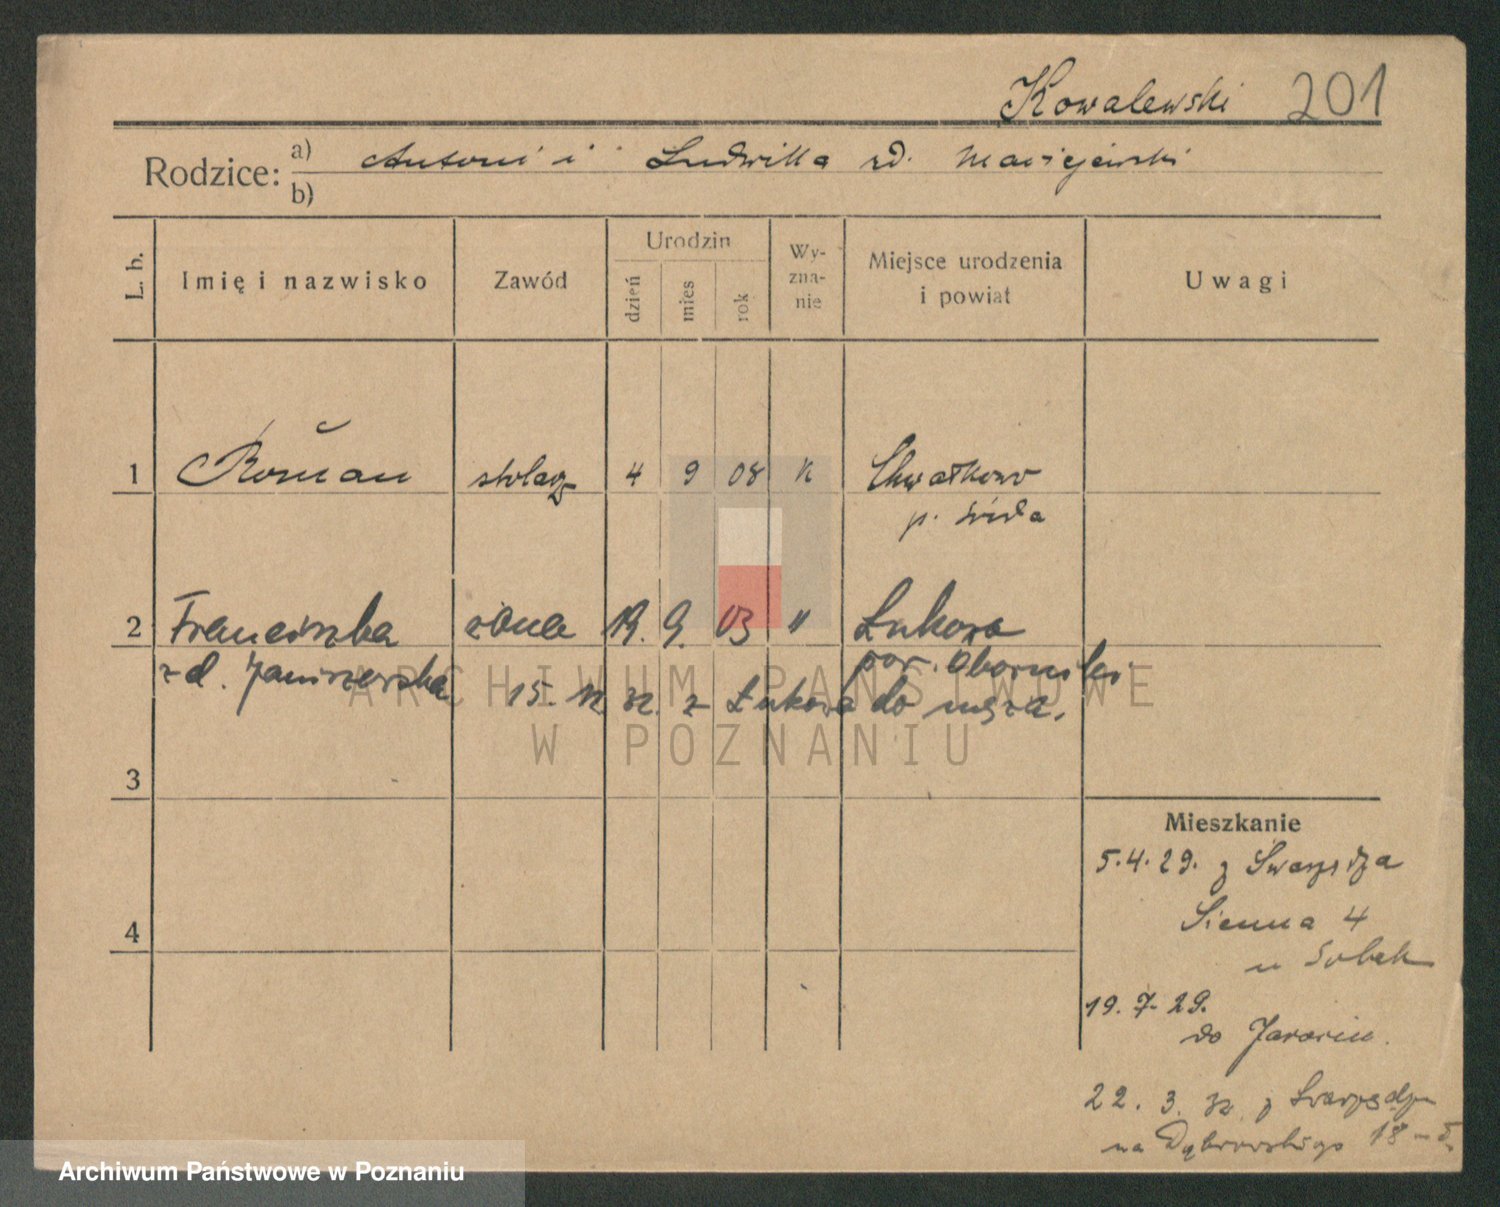 Kowalewski 201
Rodzice: a) Antoni i Ludwika zd. Maciejewski
b)
L. b.
Imię i nazwisko
Zawód
Urodzin
dzień
mies
rok
Wy-
zna-
nie
Miejsce urodzenia
i powiat
Uwagi
1 Roman stolarz 4 9 08 k Chwałkowo
p. Śrda
2 Franciszka żona 19. 9. 03 " Łukowo
zd. Janiszewska pow. Obornicki
15. 12. 32. z Łukowa do męża.
ARCHIWUM PAŃSTWOWE
W POZNANIU
3
4
Mieszkanie
5.4.29. z Swarzędza
Sienna 4
u Sobek
19. 7. 29.
do Jarocin.
22. 3. 32 z Swarzędza
na Dąbrowskiego 18 – 5.
Archiwum Państwowe w Poznaniu